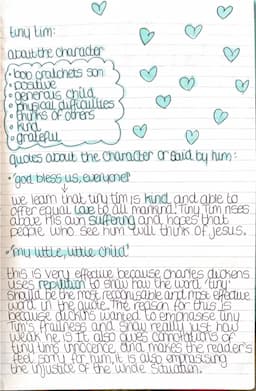 tiny tim:
about the character
• bob cratchets son
• positive
• generous child
• physical difficulties
• thinks of others
• kind
• grateful
quotes about the character or said by him:
• "god bless us, everyone!"
we learn that tiny tim is kind and able to
offer equal love to all mankind. Tiny Tim rises
above his own suffering and hopes that
people who see him will think of jesus.
• "my little, little child"
this is very effective because charles dickens
uses repitition to show how the word 'tiny'
should be the most responsable and most effective
word in the quote. The reason for this is
because dickens wanted to emphasise tiny
Tim's frailness and show really just how
weak he is. It also gives connotations of
tiny tims innocence and makes the reader's
feel sorry for him, it is also emphasising
the injustice of the whole situation.